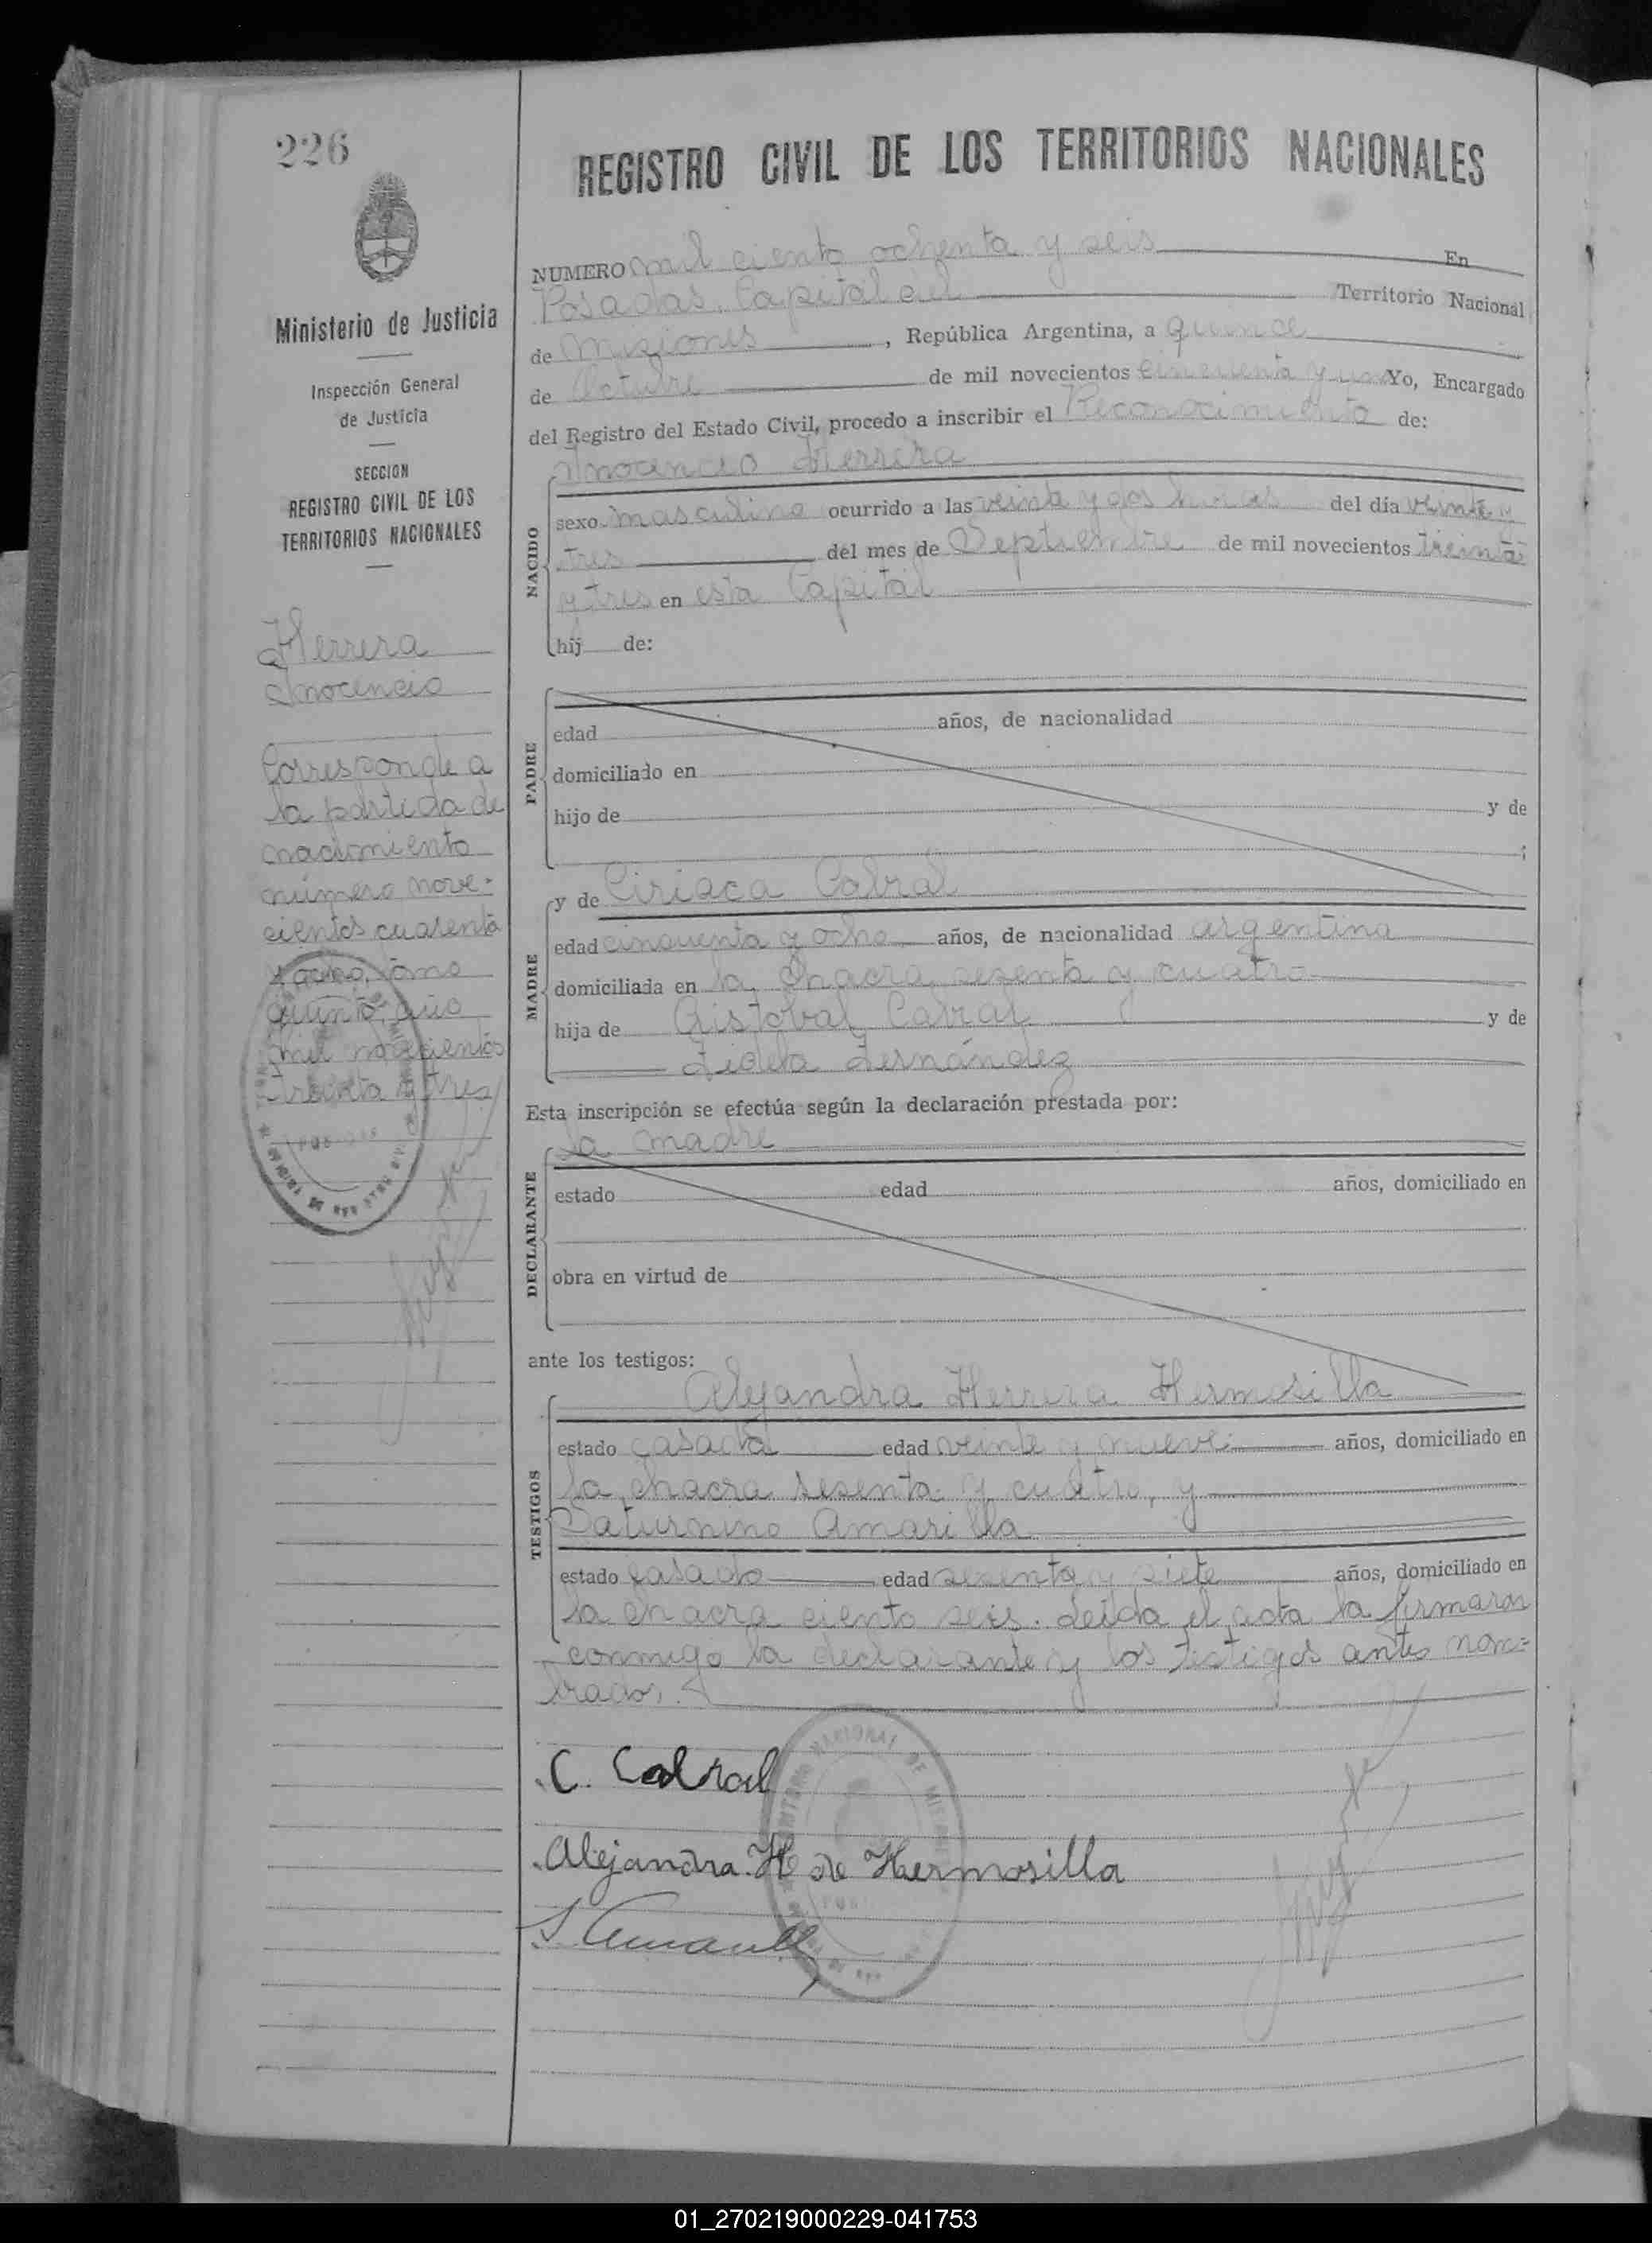 226
REGISTRO CIVIL DE LOS TERRITORIOS NACIONALES
Ministerio de Justicia
Inspección General
de Justicia
SECCION
REGISTRO CIVIL DE LOS
TERRITORIOS NACIONALES
Herrera
Inocencio
Corresponde a
la partida de
nacimiento
número nove-
cientos cuarenta
y ocho, tomo
quinto, año
mil novecientos
treinta y tres
NUMERO mil ciento ochenta y seis En
Posadas, Capital del Territorio Nacional
de Misiones, República Argentina, a quince
de Octubre de mil novecientos cincuenta y uno Yo, Encargado
del Registro del Estado Civil, procedo a inscribir el Reconocimiento de:
Inocencio Herrera
NACIDO
sexo masculino ocurrido a las veinte y dos horas del día veinte y
tres del mes de Septiembre de mil novecientos treinta
y tres en esta Capital
hij de:
PADRE
edad años, de nacionalidad
domiciliado en
hijo de y de
;
MADRE
y de Ciriaca Cabral
edad cincuenta y ocho años, de nacionalidad argentina
domiciliada en la chacra sesenta y cuatro
hija de Cristobal Cabral y de
Fidela Fernández
Esta inscripción se efectúa según la declaración prestada por:
la madre
DECLARANTE
estado edad años, domiciliado en
obra en virtud de
ante los testigos:
Alejandra Herrera Hermosilla
TESTIGOS
estado casada edad veinte y nueve años, domiciliado en
la chacra sesenta y cuatro, y
Saturnino Amarilla
estado casado edad sesenta y siete años, domiciliado en
la chacra ciento seis. Leída el acta la firmaron
conmigo la declarante y los testigos antes nom-
brados.
C. Cabral
Alejandra H de Hermosilla
S. Amarilla
01_270219000229-041753